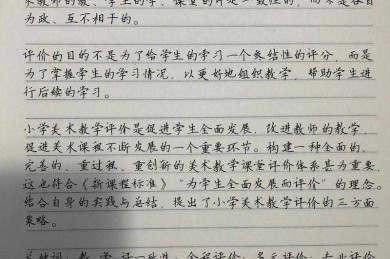 求教师的教、学生的学、课堂的评是一致性的，而不是各自
为政、互不相干的。
评价的目的不是为了给学生的学习一个终结性的评分，而是
为了掌握学生的学习情况，以更好地组织教学，帮助学生进
行后续的学习。
小学美术教学评价是促进学生全面发展，改进教师的教学，
促进美术课程不断发展的一个重要环节。构建一种全面的，
完善的，重过程，重创新的美术教学课堂评价体系甚为重要，
这也符合《新课程标准》“为学生全面发展而评价”的理念。
结合自身的实践与总结，提出了小学美术教学评价的三方面
策略。
关键词：教 学 评一致性；全程评价；多元评价；专业评价